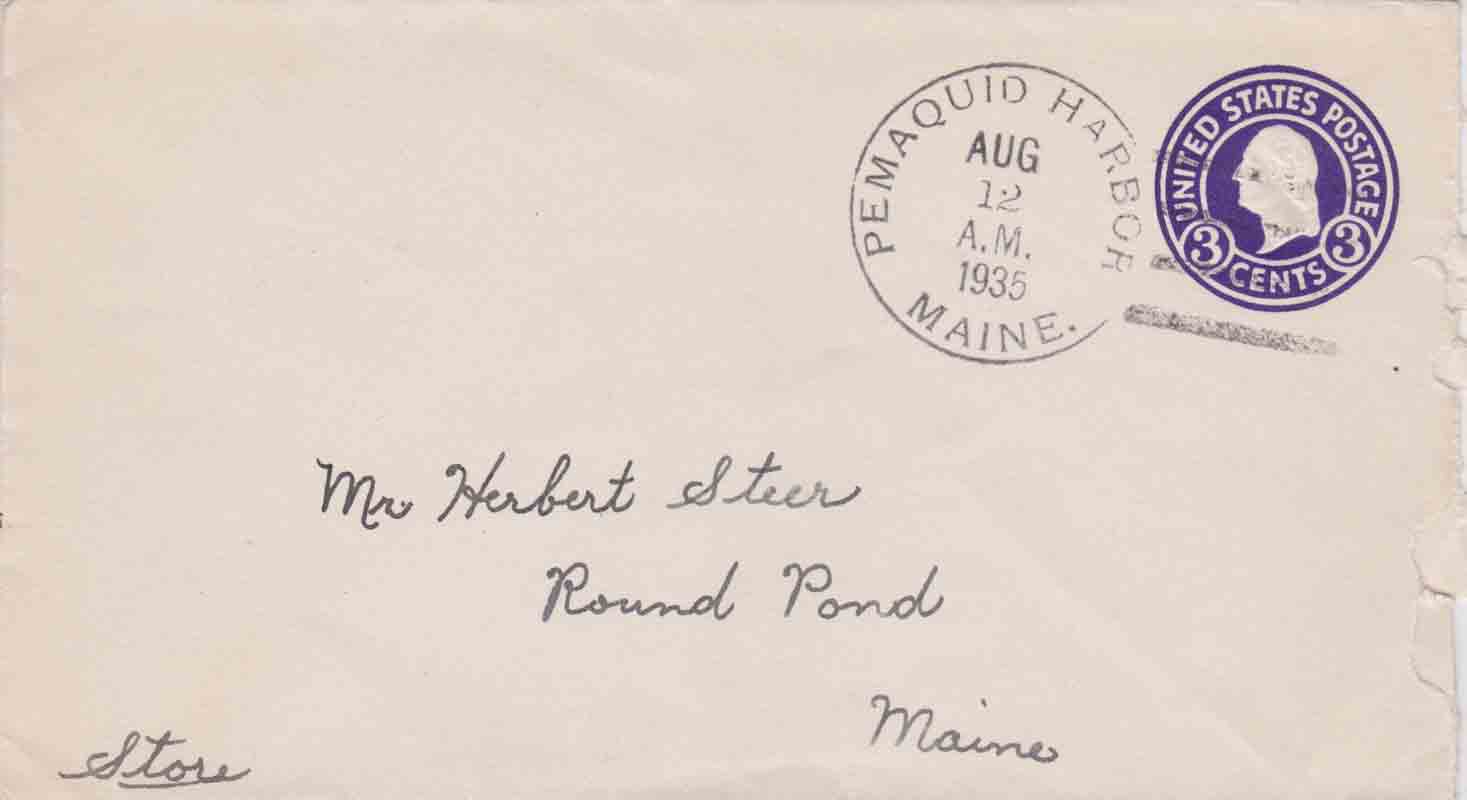 PEMAQUID HARBOR
AUG
12
A.M.
1935
MAINE.
UNITED STATES POSTAGE
3 CENTS 3
Mr Herbert Steer
Round Pond
Maine
Store